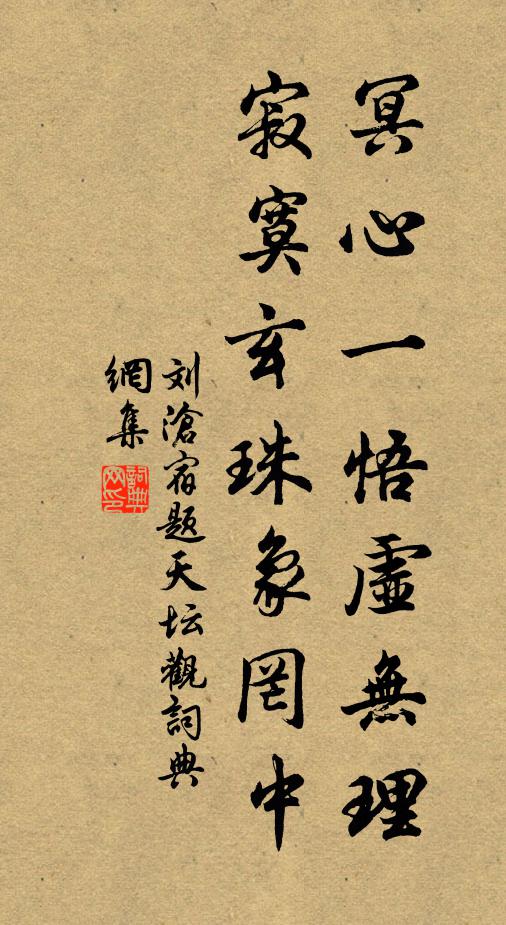 冥心一悟虛無理
寂寞玄珠象罔中
刘滄宿题天坛觀詞典
網集
詞典
网印